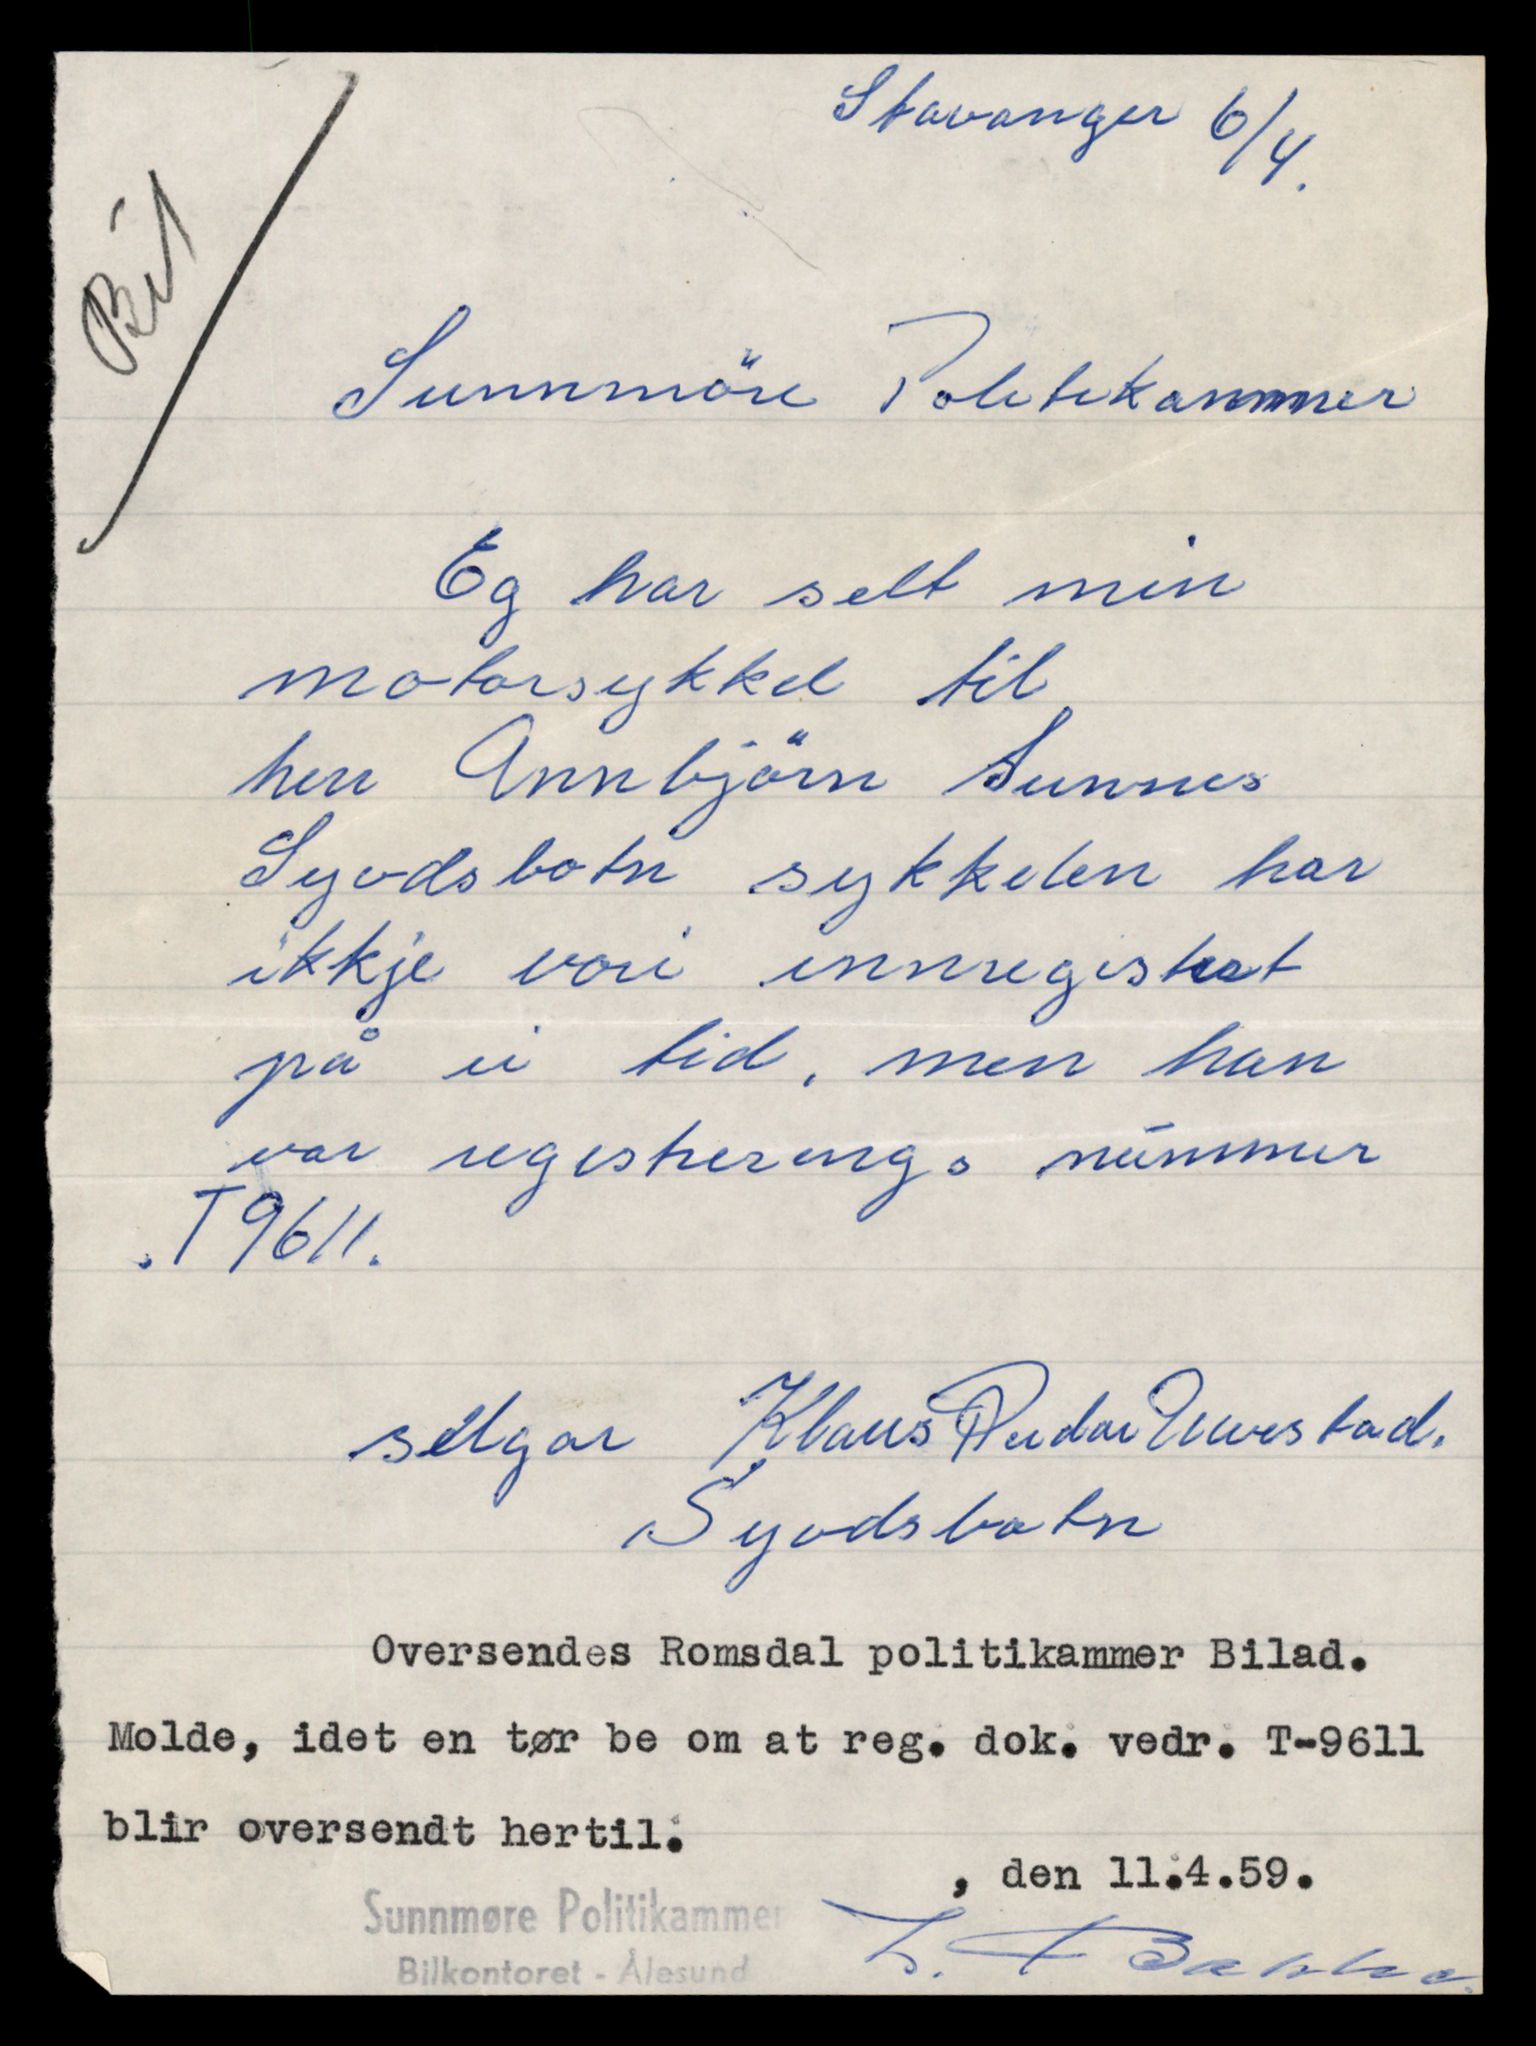 Stavanger 6/4.
Bil
Sunnmöre Politikammer
Eg har selt min
motorsykkel til
herr Annbjörn Sunnes
Syvdsbotn sykkelen har
ikkje vori innregistret
på ei tid, men han
var registrerings nummer
T9611.
selgar Klaus Reidar
Syvdsbotn
Oversendes Romsdal politikammer Bilad.
Molde, idet en tør be om at reg. dok. vedr. T-9611
blir oversendt hertil.
, den 11.4.59.
Sunnmøre Politikammer
Bilkontoret - Ålesund